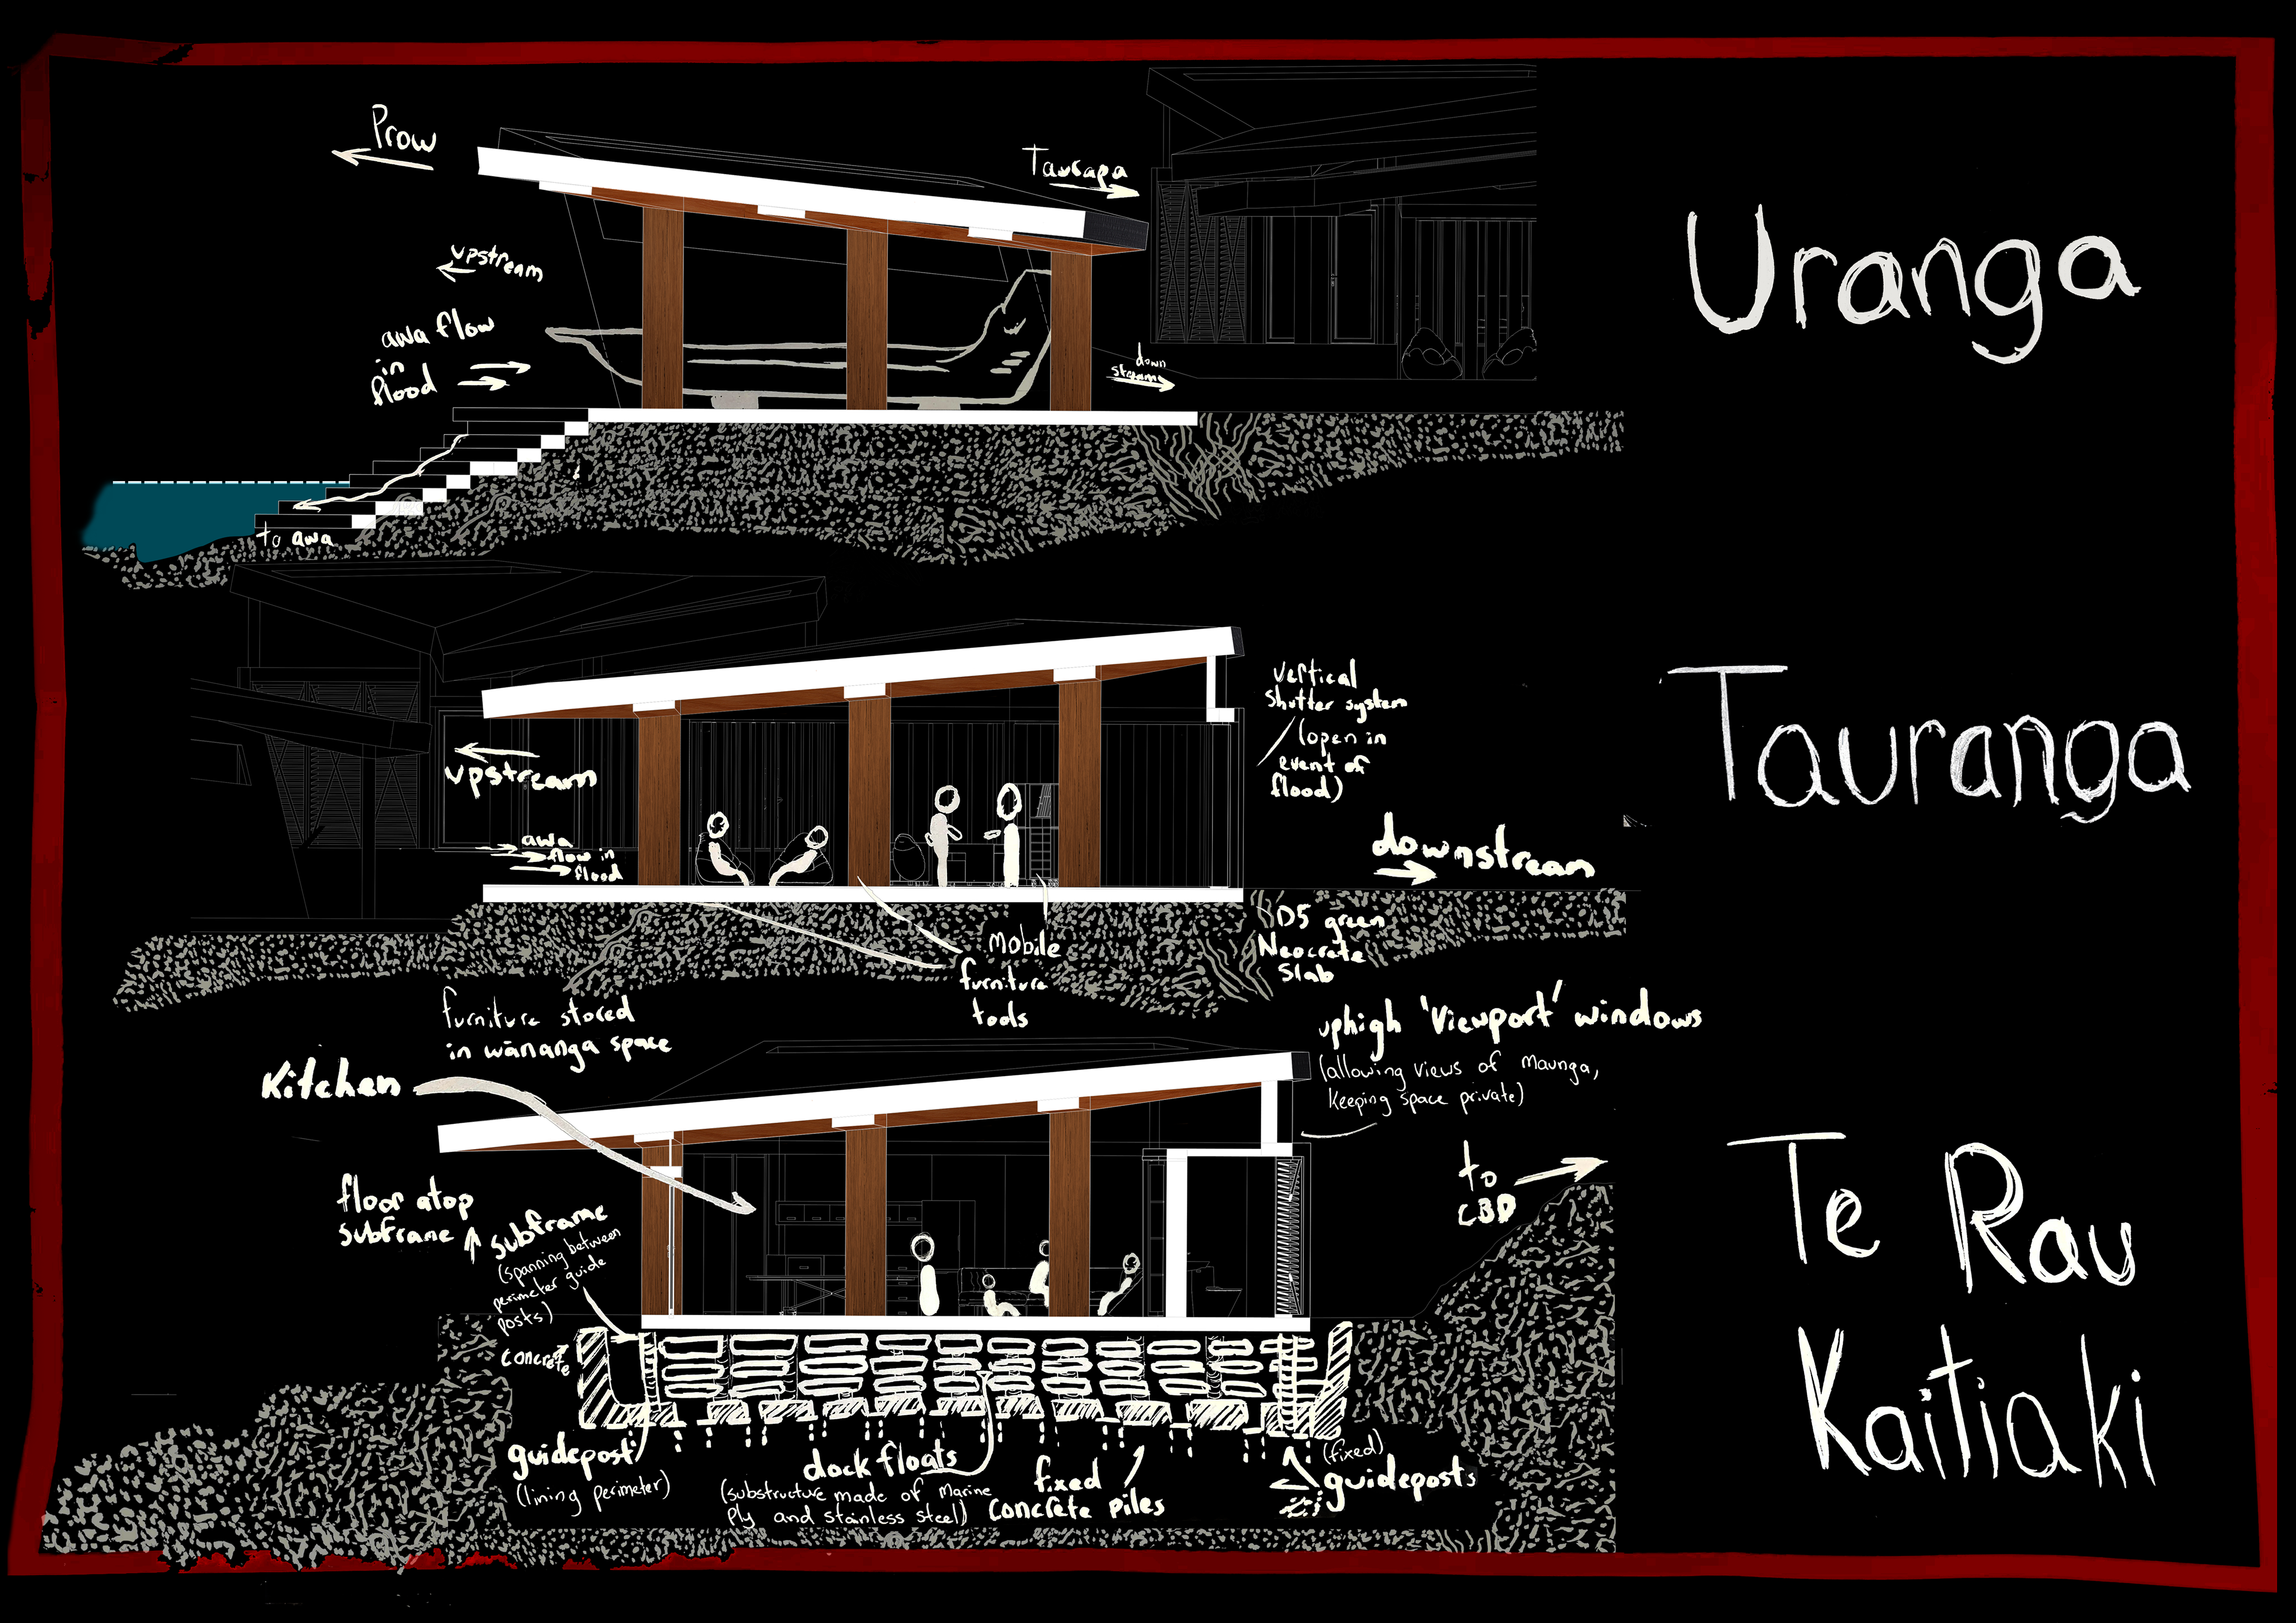 Prow
Taurapa
upstream
awa flow
in
flood
down
stream
to awa
Uranga
vertical
shutter system
(open in
event of
flood)
upstream
awa
flow in
flood
downstream
Tauranga
D5 green
Neocrete
Slab
mobile
furniture
tools
furniture stored
in wānanga space
uphigh 'viewport' windows
(allowing views of maunga,
keeping space private)
Kitchen
to
CBD
floor atop
subframe
subframe
(spanning between
perimeter guide
posts)
concrete
guidepost
(lining perimeter)
dock floats
(substructure made of Marine
Ply and stainless steel)
fixed
concrete piles
(fixed)
guideposts
Te Rau
Kaitiaki